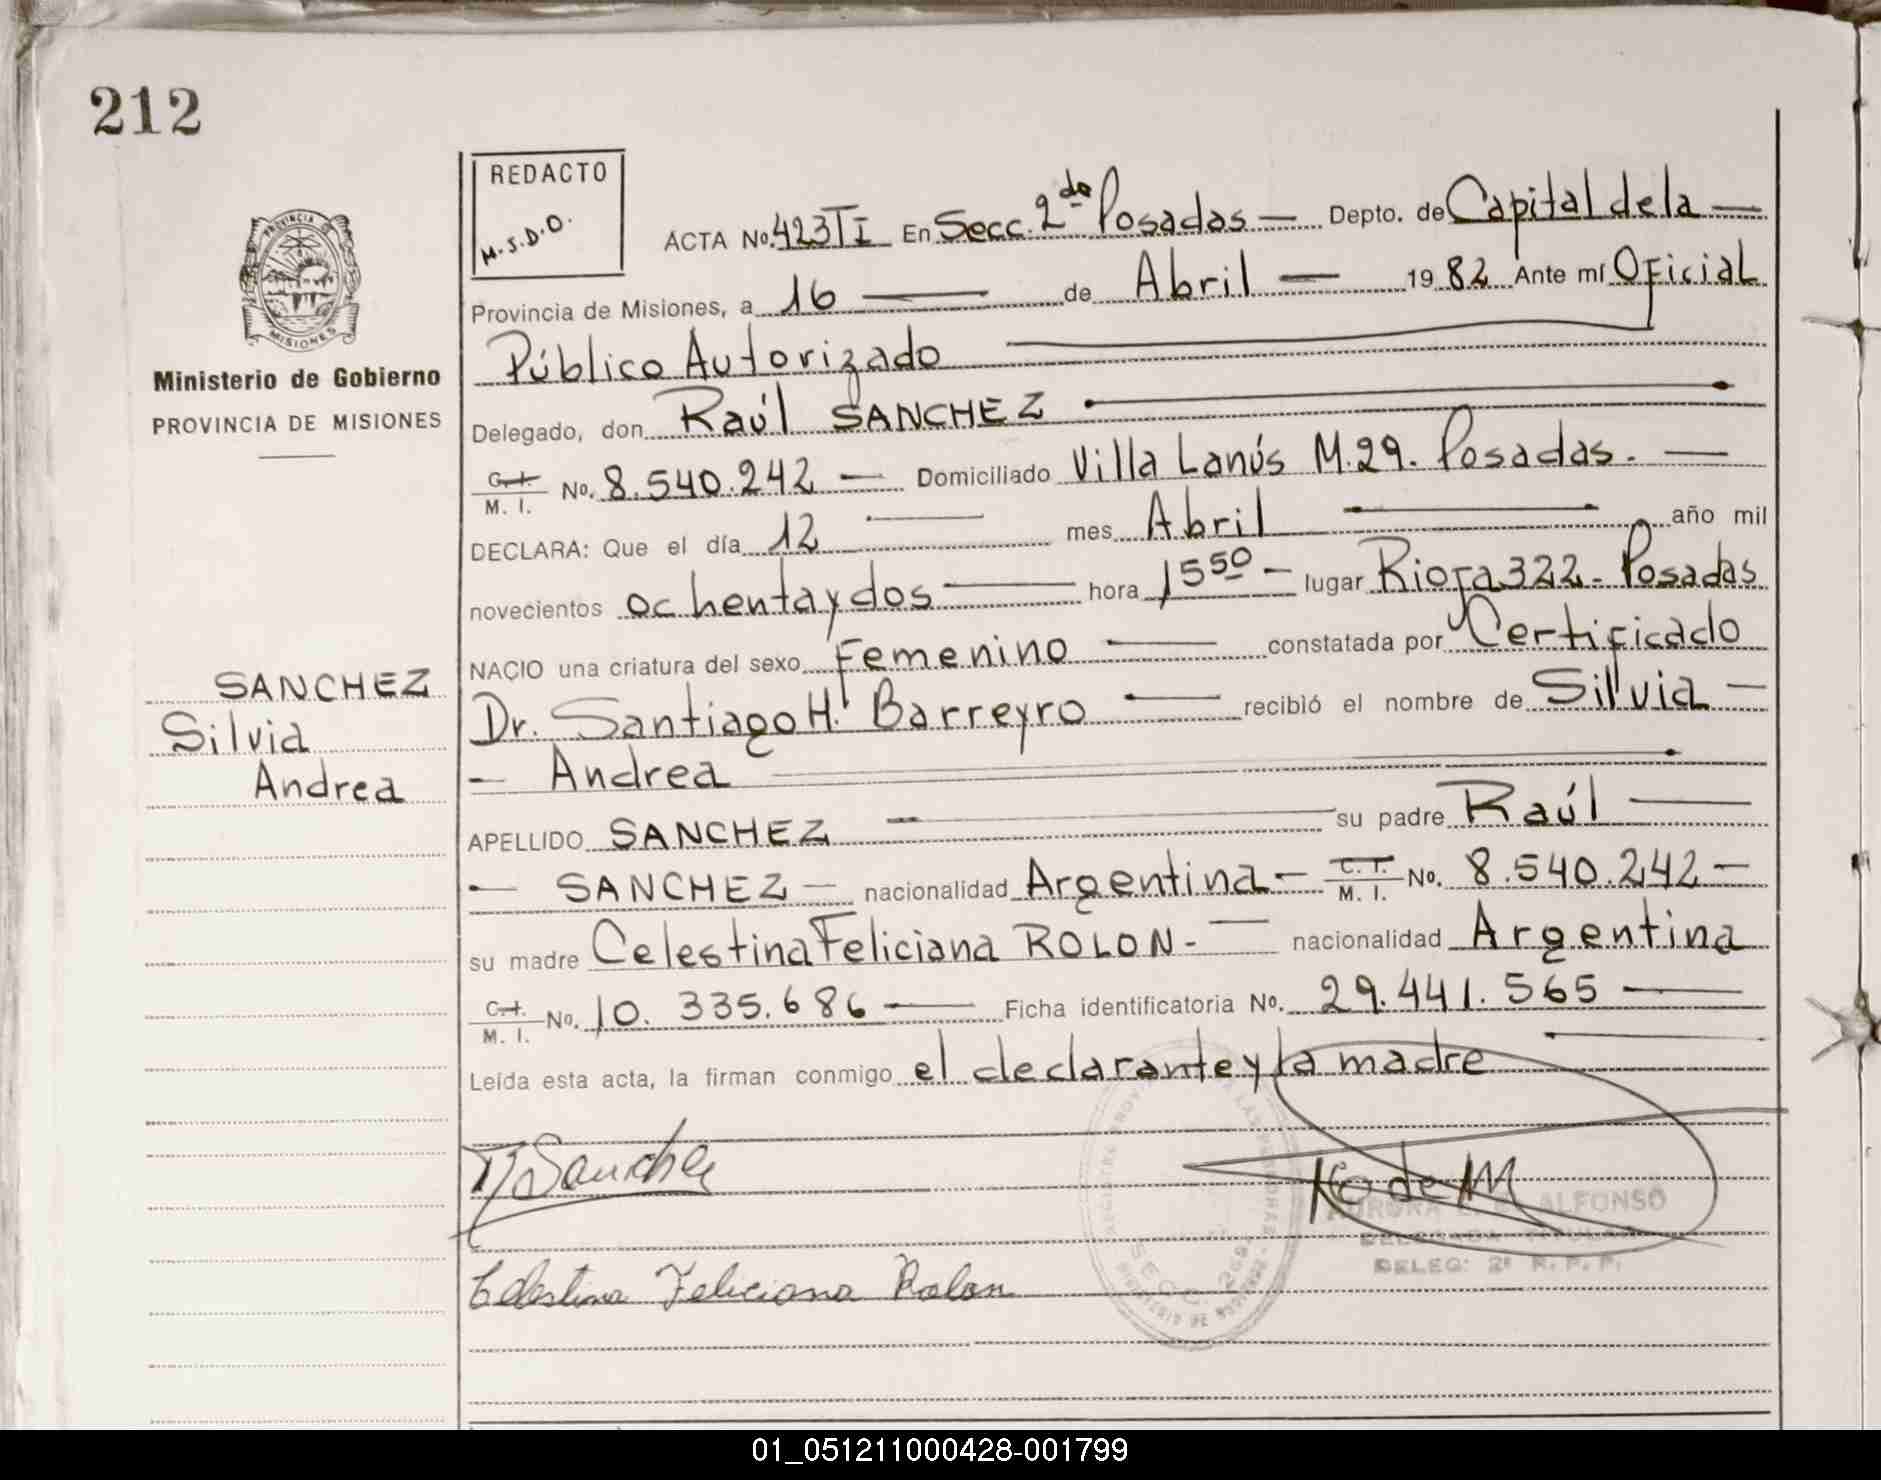 212
REDACTO
M.S.D.O.
PROVINCIA
MISIONES
Ministerio de Gobierno
PROVINCIA DE MISIONES
SANCHEZ
Silvia
Andrea
ACTA No. 423 T I En Secc. 2da Posadas — Depto. de Capital de la —
Provincia de Misiones, a 16 — de Abril — 1982 Ante mí Oficial
Público Autorizado
Delegado, don Raúl SANCHEZ
C.I. / M. I. No. 8.540.242 — Domiciliado Villa Lanús M.29. Posadas. —
DECLARA: Que el día 12 — mes Abril — año mil
novecientos ochenta y dos — hora 15 50 — lugar Rioja 322 - Posadas
NACIO una criatura del sexo Femenino — constatada por Certificado
Dr. Santiago H. Barreyro — recibió el nombre de Silvia —
— Andrea
APELLIDO SANCHEZ — su padre Raúl —
— SANCHEZ — nacionalidad Argentina — C. I. / M. I. No. 8.540.242 —
su madre Celestina Feliciana ROLON - — nacionalidad Argentina
C.I. / M. I. No. 10. 335.686 — Ficha identificatoria No. 29.441.565 —
Leída esta acta, la firman conmigo el declarante y la madre
R Sanchez
ALFONSO
DELEG: 2ª R. P. P.
SECC. 2
Celestina Feliciana Rolon
01_051211000428-001799